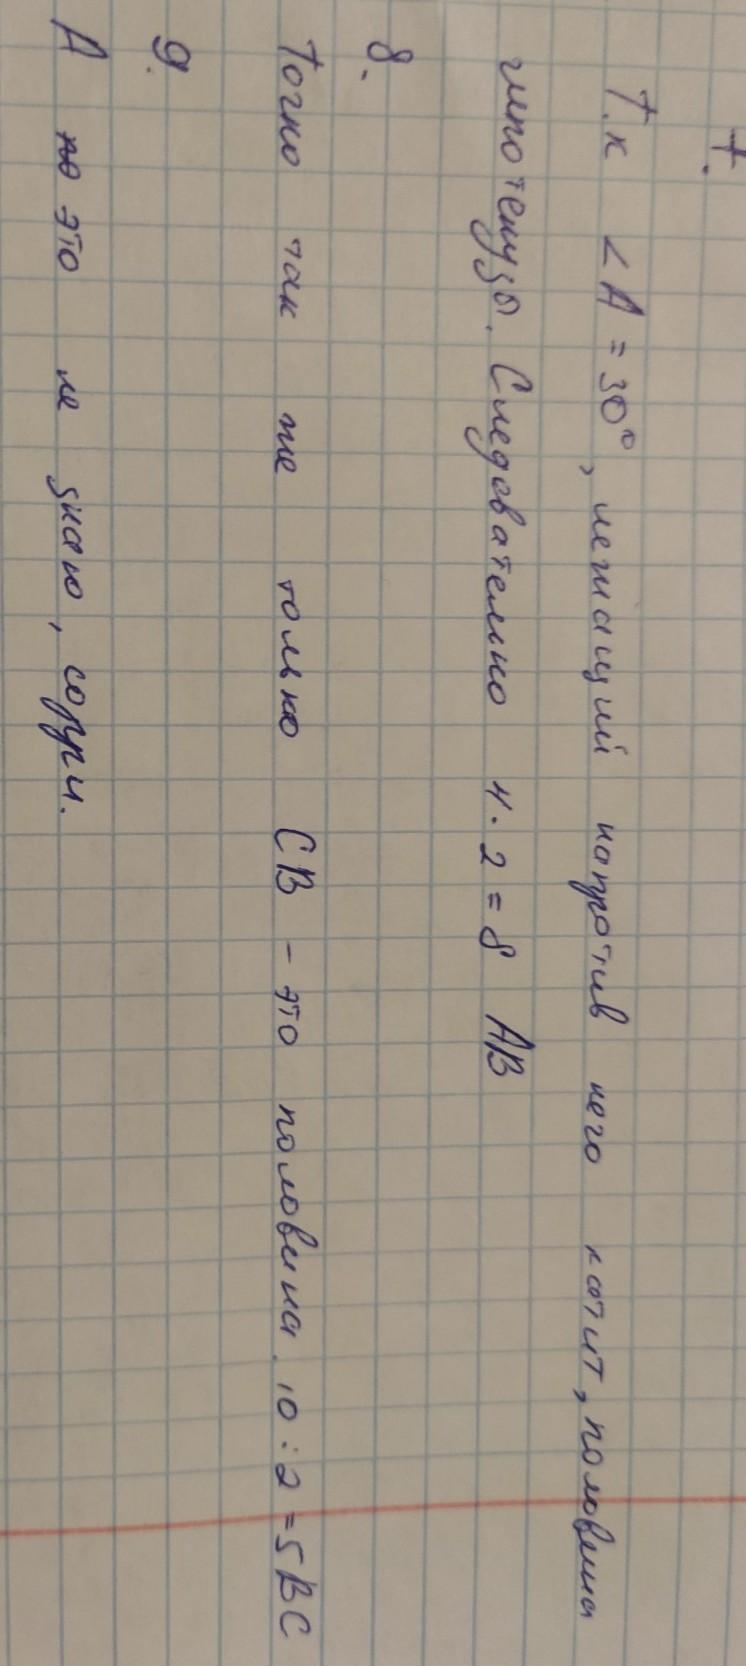 7.
Т.к ∠A = 30°, лежащий напротив него катит, половина
гипотенузы. Следовательно 4·2=8 AB
8.
Точно так же только CB – это половина 10:2=5BC
9.
А это не знаю, сорри.